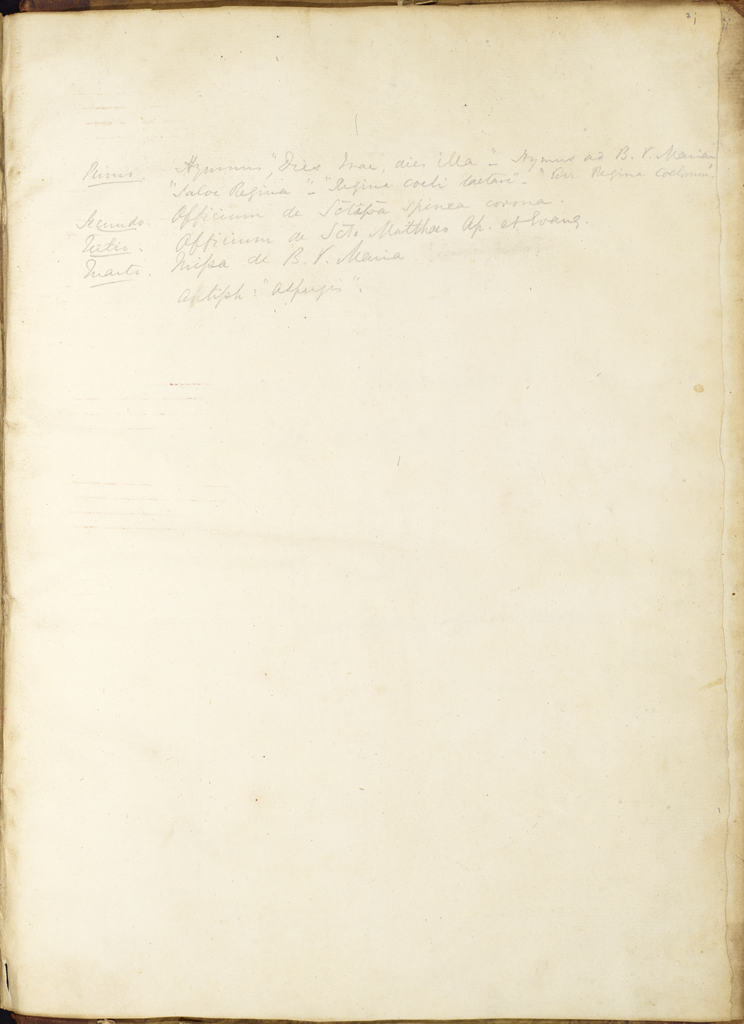 Primo. Hymnus "Dies Irae, dies illa" - Hymnus ad B. V. Mariam,
"Salve Regina" - "Regina coeli laetare" - Regina coelorum.
Secundo. Officium de spinea corona.
Tertio. Officium de Scto Matthaeo Ap. et Evang.
Quarto. Missa de B. V. Maria
Antiph: "Asperges".